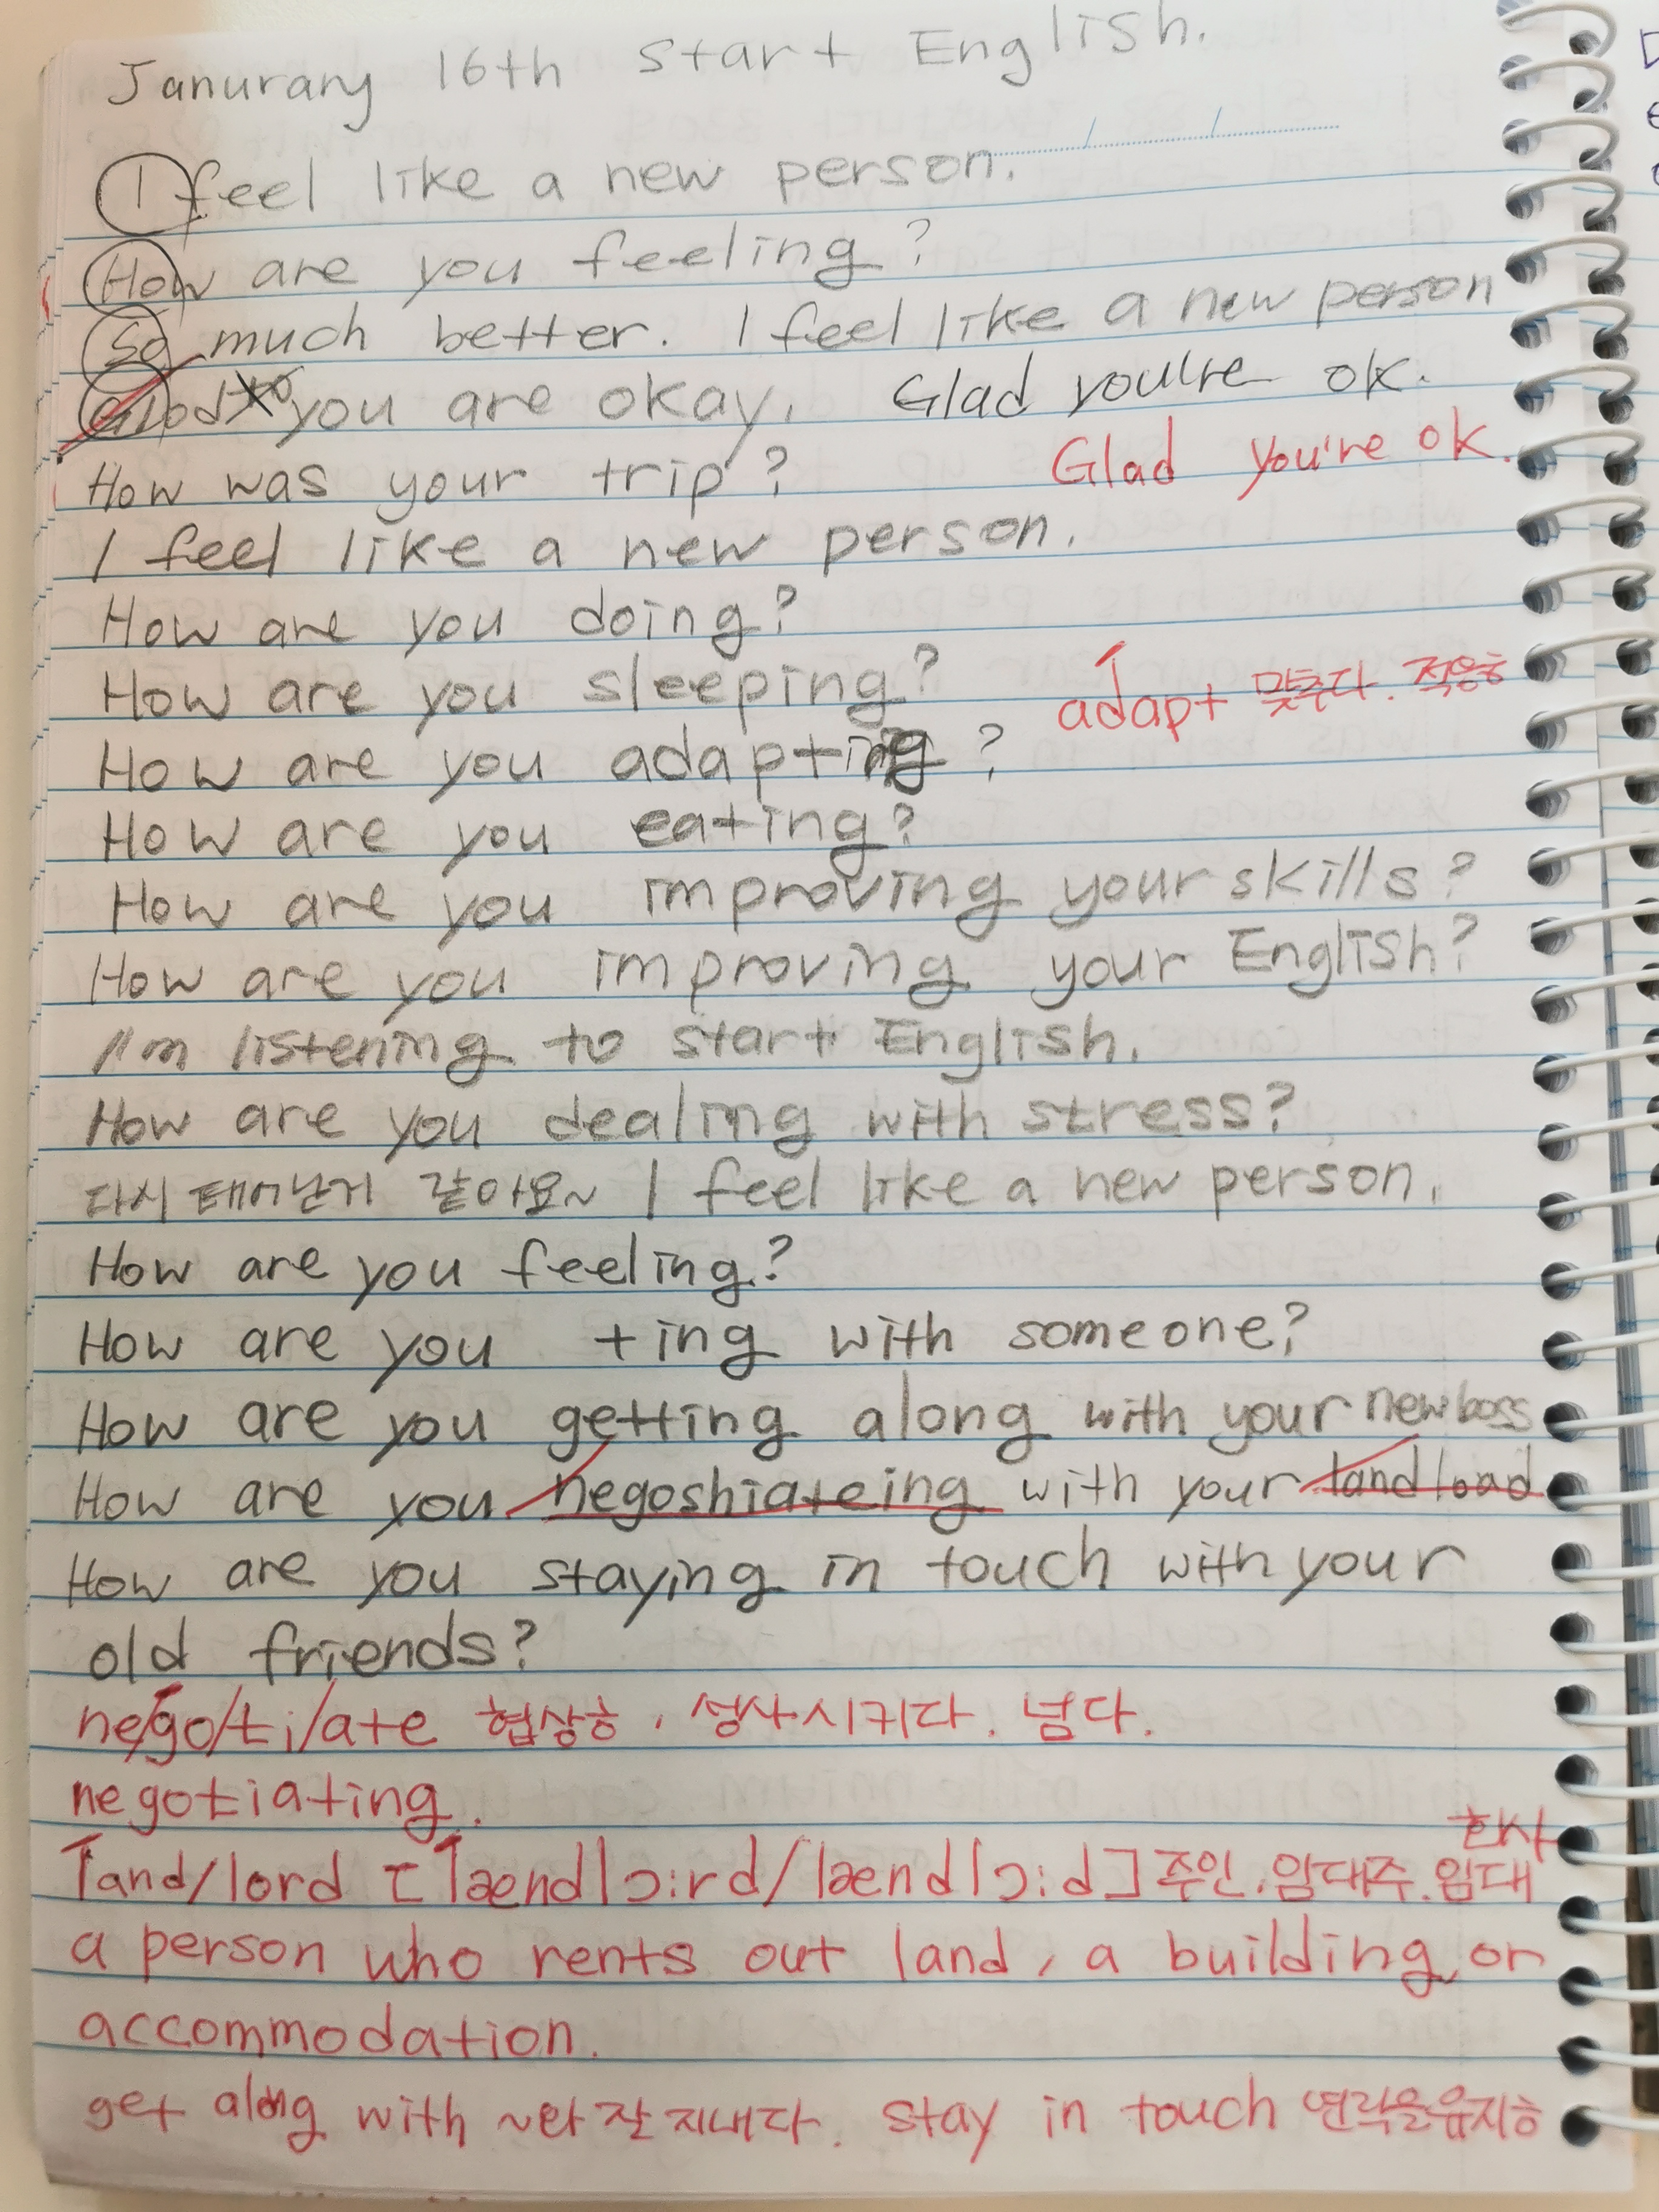 Janurary 16th start English.
I feel like a new person.
How are you feeling?
So much better. I feel like a new person
Glad to you are okay. Glad you're ok.
Glad you're ok.
How was your trip?
I feel like a new person.
How are you doing?
How are you sleeping?
adapt 맞추다. 적응ㅎ
How are you adapting?
How are you eating?
How are you improving your skills?
How are you improving your English?
I'm listening to start English.
How are you dealing with stress?
다시 태어난거 같아요~ I feel like a new person.
How are you feeling?
How are you +ing with someone?
How are you getting along with your new boss
How are you negoshiateing with your landload
How are you staying in touch with your
old friends?
ne/go/ti/ate 협상ㅎ, 성사시키다. 넘다.
negotiating.
land/lord [lændlɔ:rd/lændlɔ:d] 주인. 임대주. 임대
a person who rents out land, a building, or
accommodation.
get along with ~와 잘 지내다. stay in touch 연락을유지ㅎ